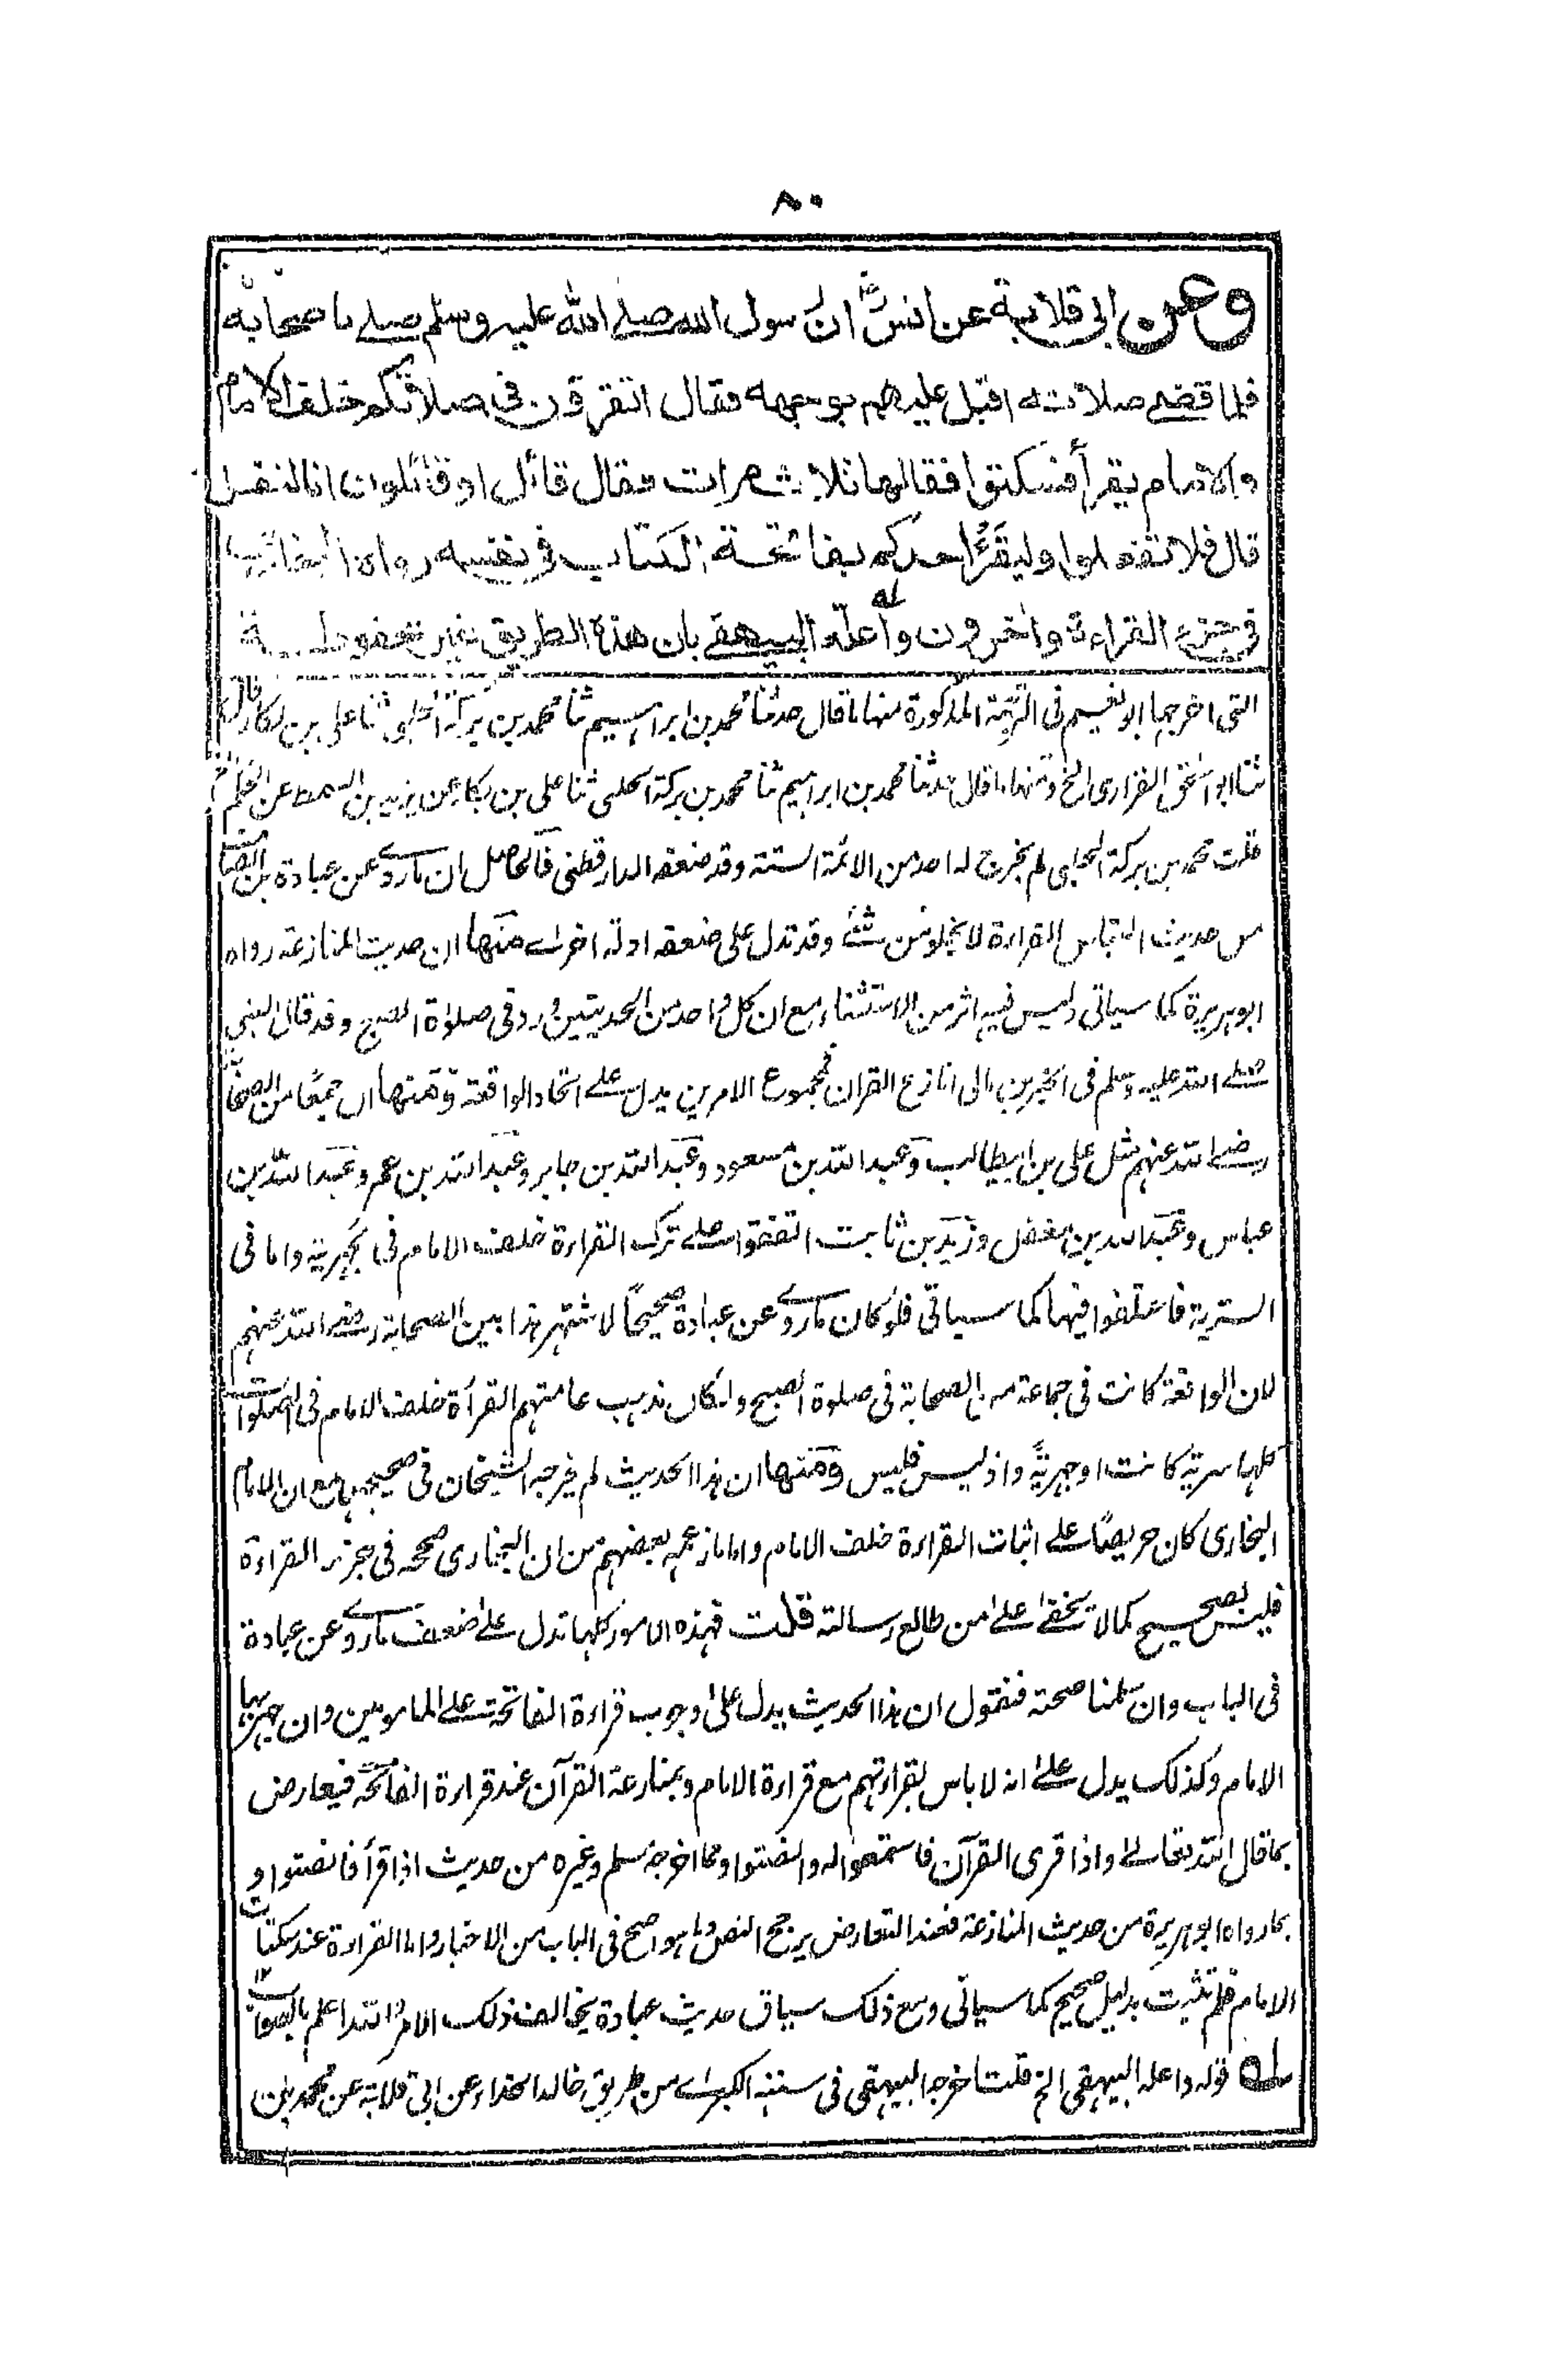 ٨٠
وعن ابي قلابة عن انسؓ ان رسول الله صلى الله عليه وسلم صلى باصحابه
فلما قضى صلاته اقبل عليهم بوجهه فقال اتقرؤن فى صلاتكم خلف الامام
والامام يقرأ فسكتوا فقالها ثلاث مرات فقال قائل او قائلون انا لنفعل
قال فلا تفعلوا وليقرأ احدكم بفاتحة الكتاب فى نفسه رواه البخارى
فى جزء القراءة واخرون واعله البيهقى بان هذه الطريق غير محفوظة
التى اخرجها ابو نعيم فى الترجمة المذكورة منها ما قال حدثنا محمد بن ابراهيم ثنا محمد بن بركة الحلبى ثنا على بن بكار قال
ثنا ابو اسحق الفزارى الخ ومنها ما قال حدثنا محمد بن ابراهيم ثنا محمد بن بركة الحلبى ثنا على بن بكار عن يزيد بن السمط عن
قلت محمد بن بركة الحلبى لم يخرج له احد من الائمة الستة وقد ضعفه الدارقطنى فالحاصل ان ما روى عن عبادة بن الصامت
من حديث التباس القراءة لا يخلو من شئ وقد تدل على ضعفه ادلة اخرى منها ان حديث المنازعة رواه
ابو هريرة كما سياتى وليس فيه اثر من الاستثناء مع ان كل واحد من الحديثين ورد فى صلوة الصبح وقد قال النبى
صلى الله عليه وسلم فى الخبرين مالى انازع القران فمجموع الامرين يدل على اتحاد الواقعة ومنها ان جميعا من الصحابة
رضى الله عنهم مثل على بن ابيطالب وعبد الله بن مسعود وعبد الله بن جابر وعبد الله بن عمر وعبد الله بن
عباس وعبد الله بن مغفل وزيد بن ثابت اتفقوا على ترك القراءة خلف الامام فى الجهرية واما فى
السرية فاختلفوا فيها كما سياتى فلو كان ما روى عن عبادة صحيحًا لاشتهر هذا بين الصحابة رضى الله عنهم
لان الواقعة كانت فى جماعة من الصحابة فى صلوة الصبح ولكان مذهب عامتهم القرأة خلف الامام فى الصلوات
كلها سرية كانت او جهرية واذ ليس فليس ومنها ان هذا الحديث لم يخرجه الشيخان فى صحيحيهما مع ان الامام
البخارى كان حريصًا على اثبات القراءة خلف الامام واما ما زعمه بعضهم من ان البخارى صححه فى جزء القراءة
فليس بصحيح كما لا يخفى على من طالع رسالته قلت فهذه الامور كلها تدل على ضعف ما روى عن عبادة
فى الباب وان سلمنا صحته فنقول ان هذا الحديث يدل على وجوب قراءة الفاتحة على المامومين وان جهر بها
الامام وكذلك يدل على انه لا باس بقراءتهم مع قراءة الامام وبمنازعة القرآن عند قراءة الفاتحة فيعارض
بما قال الله تعالى واذا قرى القرآن فاستمعوا له وانصتوا ومما اخرجه مسلم وغيره من حديث اذا قرأ فانصتوا و
بما رواه ابو هريرة من حديث المنازعة فعند التعارض يرجح النص وما هو اصح فى الباب من الاخبار واما القراءة عند سكتات
الامام فلم تثبت بدليل صحيح كما سياتى ومع ذلك سياق حديث عبادة يخالف ذلك الامر والله اعلم بالصواب ١٢
له قوله واعله البيهقى الخ قلت اخرجه البيهقى فى سننه الكبرى من طريق خالد الحذاء عن ابى قلابة عن محمد بن